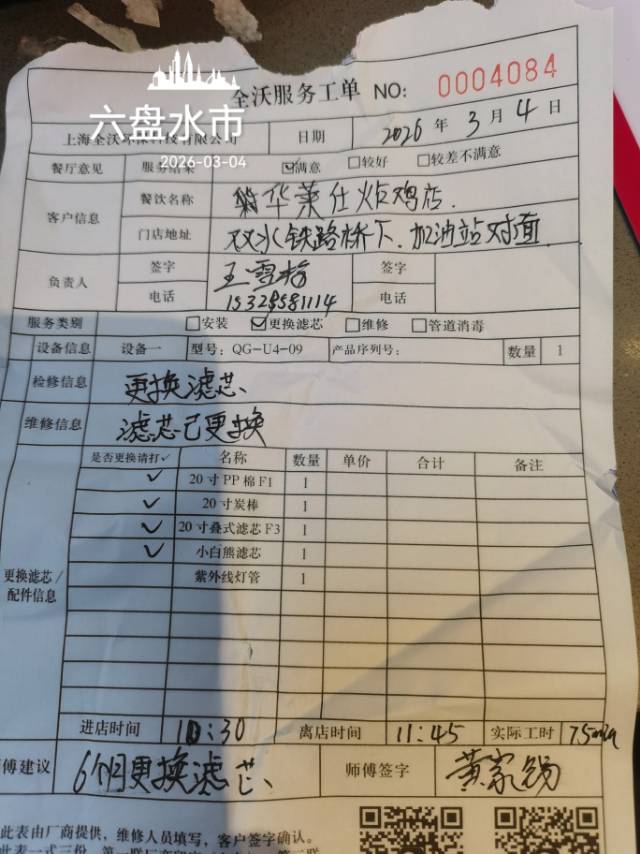 六盘水市
2026-03-04
全沃服务工单 NO: 0004084
上海全沃环保科技有限公司 日期 2026 年 3 月 4 日
餐厅意见 服务结果 ☑满意 □较好 □较差不满意
客户信息 餐饮名称 华莱仕炸鸡店.
门店地址 双水铁路桥下.加油站对面
负责人 签字 王雪梅 签字
电话 电话
服务类别 □安装 ☑更换滤芯 □维修 □管道消毒
设备信息 设备一 型号: QG-U4-09 产品序列号: 数量 1
检修信息 更换滤芯、
维修信息 滤芯已更换
更换滤芯/配件信息 是否更换请打✓ 名称 数量 单价 合计 备注
✓ 20寸PP棉F1 1
✓ 20寸炭棒 1
✓ 20寸叠式滤芯F3 1
✓ 小白熊滤芯 1
紫外线灯管 1
进店时间 10:30 离店时间 11:45 实际工时 75min
师傅建议 6个月更换滤芯、 师傅签字 黄家锡
此表由厂商提供，维修人员填写，客户签字确认。